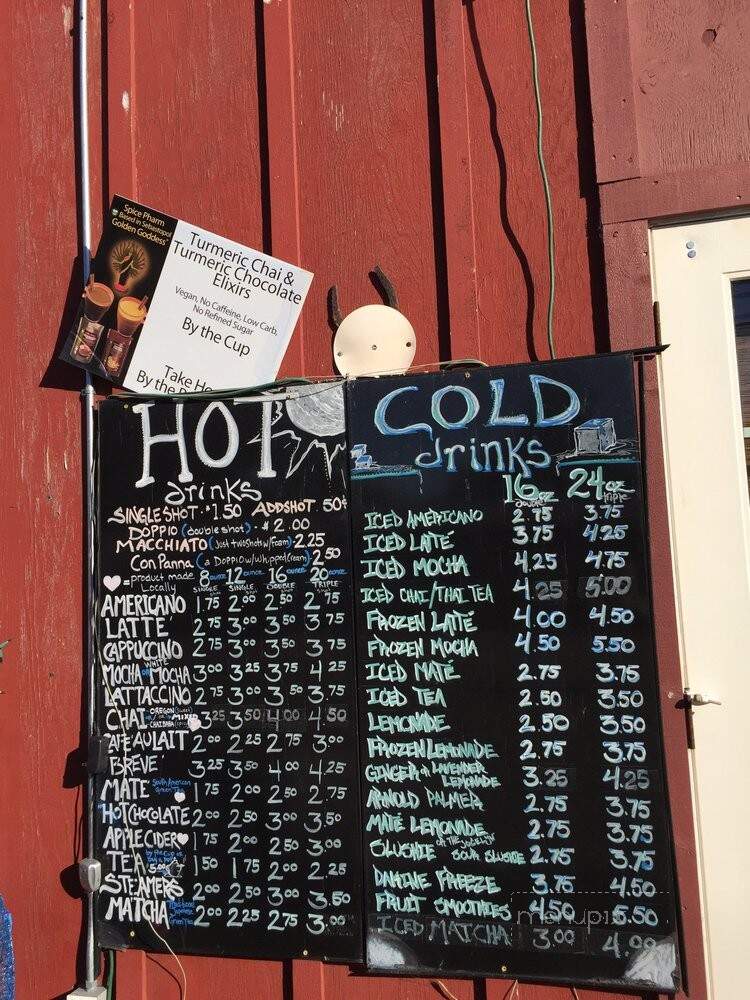 Spice Pharm
Based in Sebastopol
Golden Goddess
Turmeric Chai &
Turmeric Chocolate
Elixirs
Vegan, No Caffeine, Low Carb,
No Refined Sugar
By the Cup
Take Ho
By the
HOT
drinks
SINGLE SHOT · $1.50 ADD SHOT 50¢
DOPPIO (double shot) - $2.00
MACCHIATO (Just two shots w/foam) 2.25
Con Panna (a DOPPIO w/whipped cream) 2.50
=product made Locally
8 ounce 12 ounce 16 ounce 20 ounce
SINGLE SINGLE DOUBLE TRIPLE
AMERICANO 1.75 2.00 2.50 2.75
LATTE 2.75 3.00 3.50 3.75
CAPPUCCINO 2.75 3.00 3.50 3.75
MOCHA or WHITE MOCHA 3.00 3.25 3.75 4.25
LATTACCINO 2.75 3.00 3.50 3.75
CHAI OREGON 3.25 3.50 4.00 4.50
CAFE AU LAIT 2.00 2.25 2.75 3.00
BREVE 3.25 3.50 4.00 4.25
MATE South American Green Tea 1.75 2.00 2.50 2.75
HOT CHOCOLATE 2.00 2.50 3.00 3.50
APPLE CIDER 1.75 2.00 2.50 3.00
TEA 1.50 1.75 2.00 2.25
STEAMERS 2.00 2.50 3.00 3.50
MATCHA Japanese Green Tea 2.00 2.25 2.75 3.00
COLD
drinks
16 oz 24 oz
double triple
ICED AMERICANO 2.75 3.75
ICED LATTE 3.75 4.25
ICED MOCHA 4.25 4.75
ICED CHAI/THAI TEA 4.25 5.00
FROZEN LATTE 4.00 4.50
FROZEN MOCHA 4.50 5.50
ICED MATÉ 2.75 3.75
ICED TEA 2.50 3.50
LEMONADE 2.50 3.50
FROZEN LEMONADE 2.75 3.75
GINGER or LAVENDER LEMONADE 3.25 4.25
ARNOLD PALMER 2.75 3.75
MATÉ LEMONADE 2.75 3.75
SLUSHIE or THE JOCELYN SOUR SLUSHIE 2.75 3.75
DIVINE FREEZE 3.75 4.50
FRUIT SMOOTHIES 4.50 5.50
ICED MATCHA 3.00 4.00
menupix